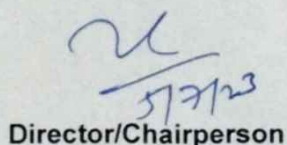 5/7/23
Director/Chairperson